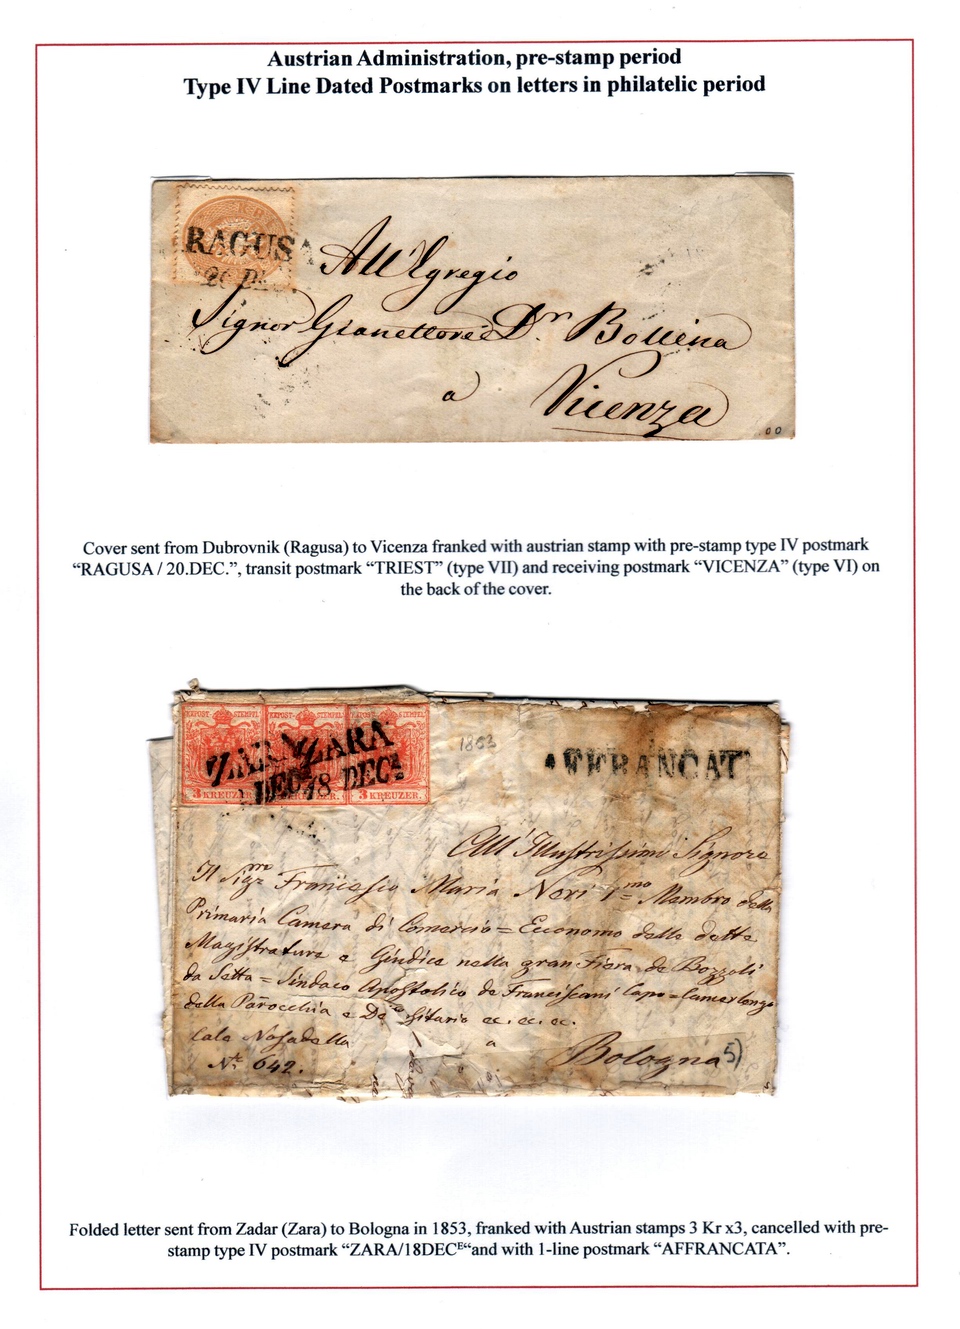 Austrian Administration, pre-stamp period
Type IV Line Dated Postmarks on letters in philatelic period
RAGUSA
20 DEC.
All'Egregio
Signor Gianettore Dr. Bollina
a
Vicenza
Cover sent from Dubrovnik (Ragusa) to Vicenza franked with austrian stamp with pre-stamp type IV postmark
“RAGUSA / 20.DEC.”, transit postmark “TRIEST” (type VII) and receiving postmark “VICENZA” (type VI) on
the back of the cover.
KKPOST STEMPEL KKPOST STEMPEL KKPOST STEMPEL
ZARA ZARA
DECE 18 DECE
3 KREUZER. KREUZER. 3 KREUZER.
1853
AFFRANCAT
All' Illustrissimi Signore
Il Sigre Francesco Maria Neri Imo Membro della
Primaria Camera di Comercio = Economo delle dette
Magistrature e Giudice nella gran Fiera de Bozzoli
da Setta = Sindaco Apostolico de Franciscani Capo = Camerlongo
della Parocchia e Depositario ec. ec. ec.
Cale Nosadella a
Nr. 642. Bologna 5)
Folded letter sent from Zadar (Zara) to Bologna in 1853, franked with Austrian stamps 3 Kr x3, cancelled with pre-
stamp type IV postmark “ZARA/18DECE“and with 1-line postmark “AFFRANCATA”.